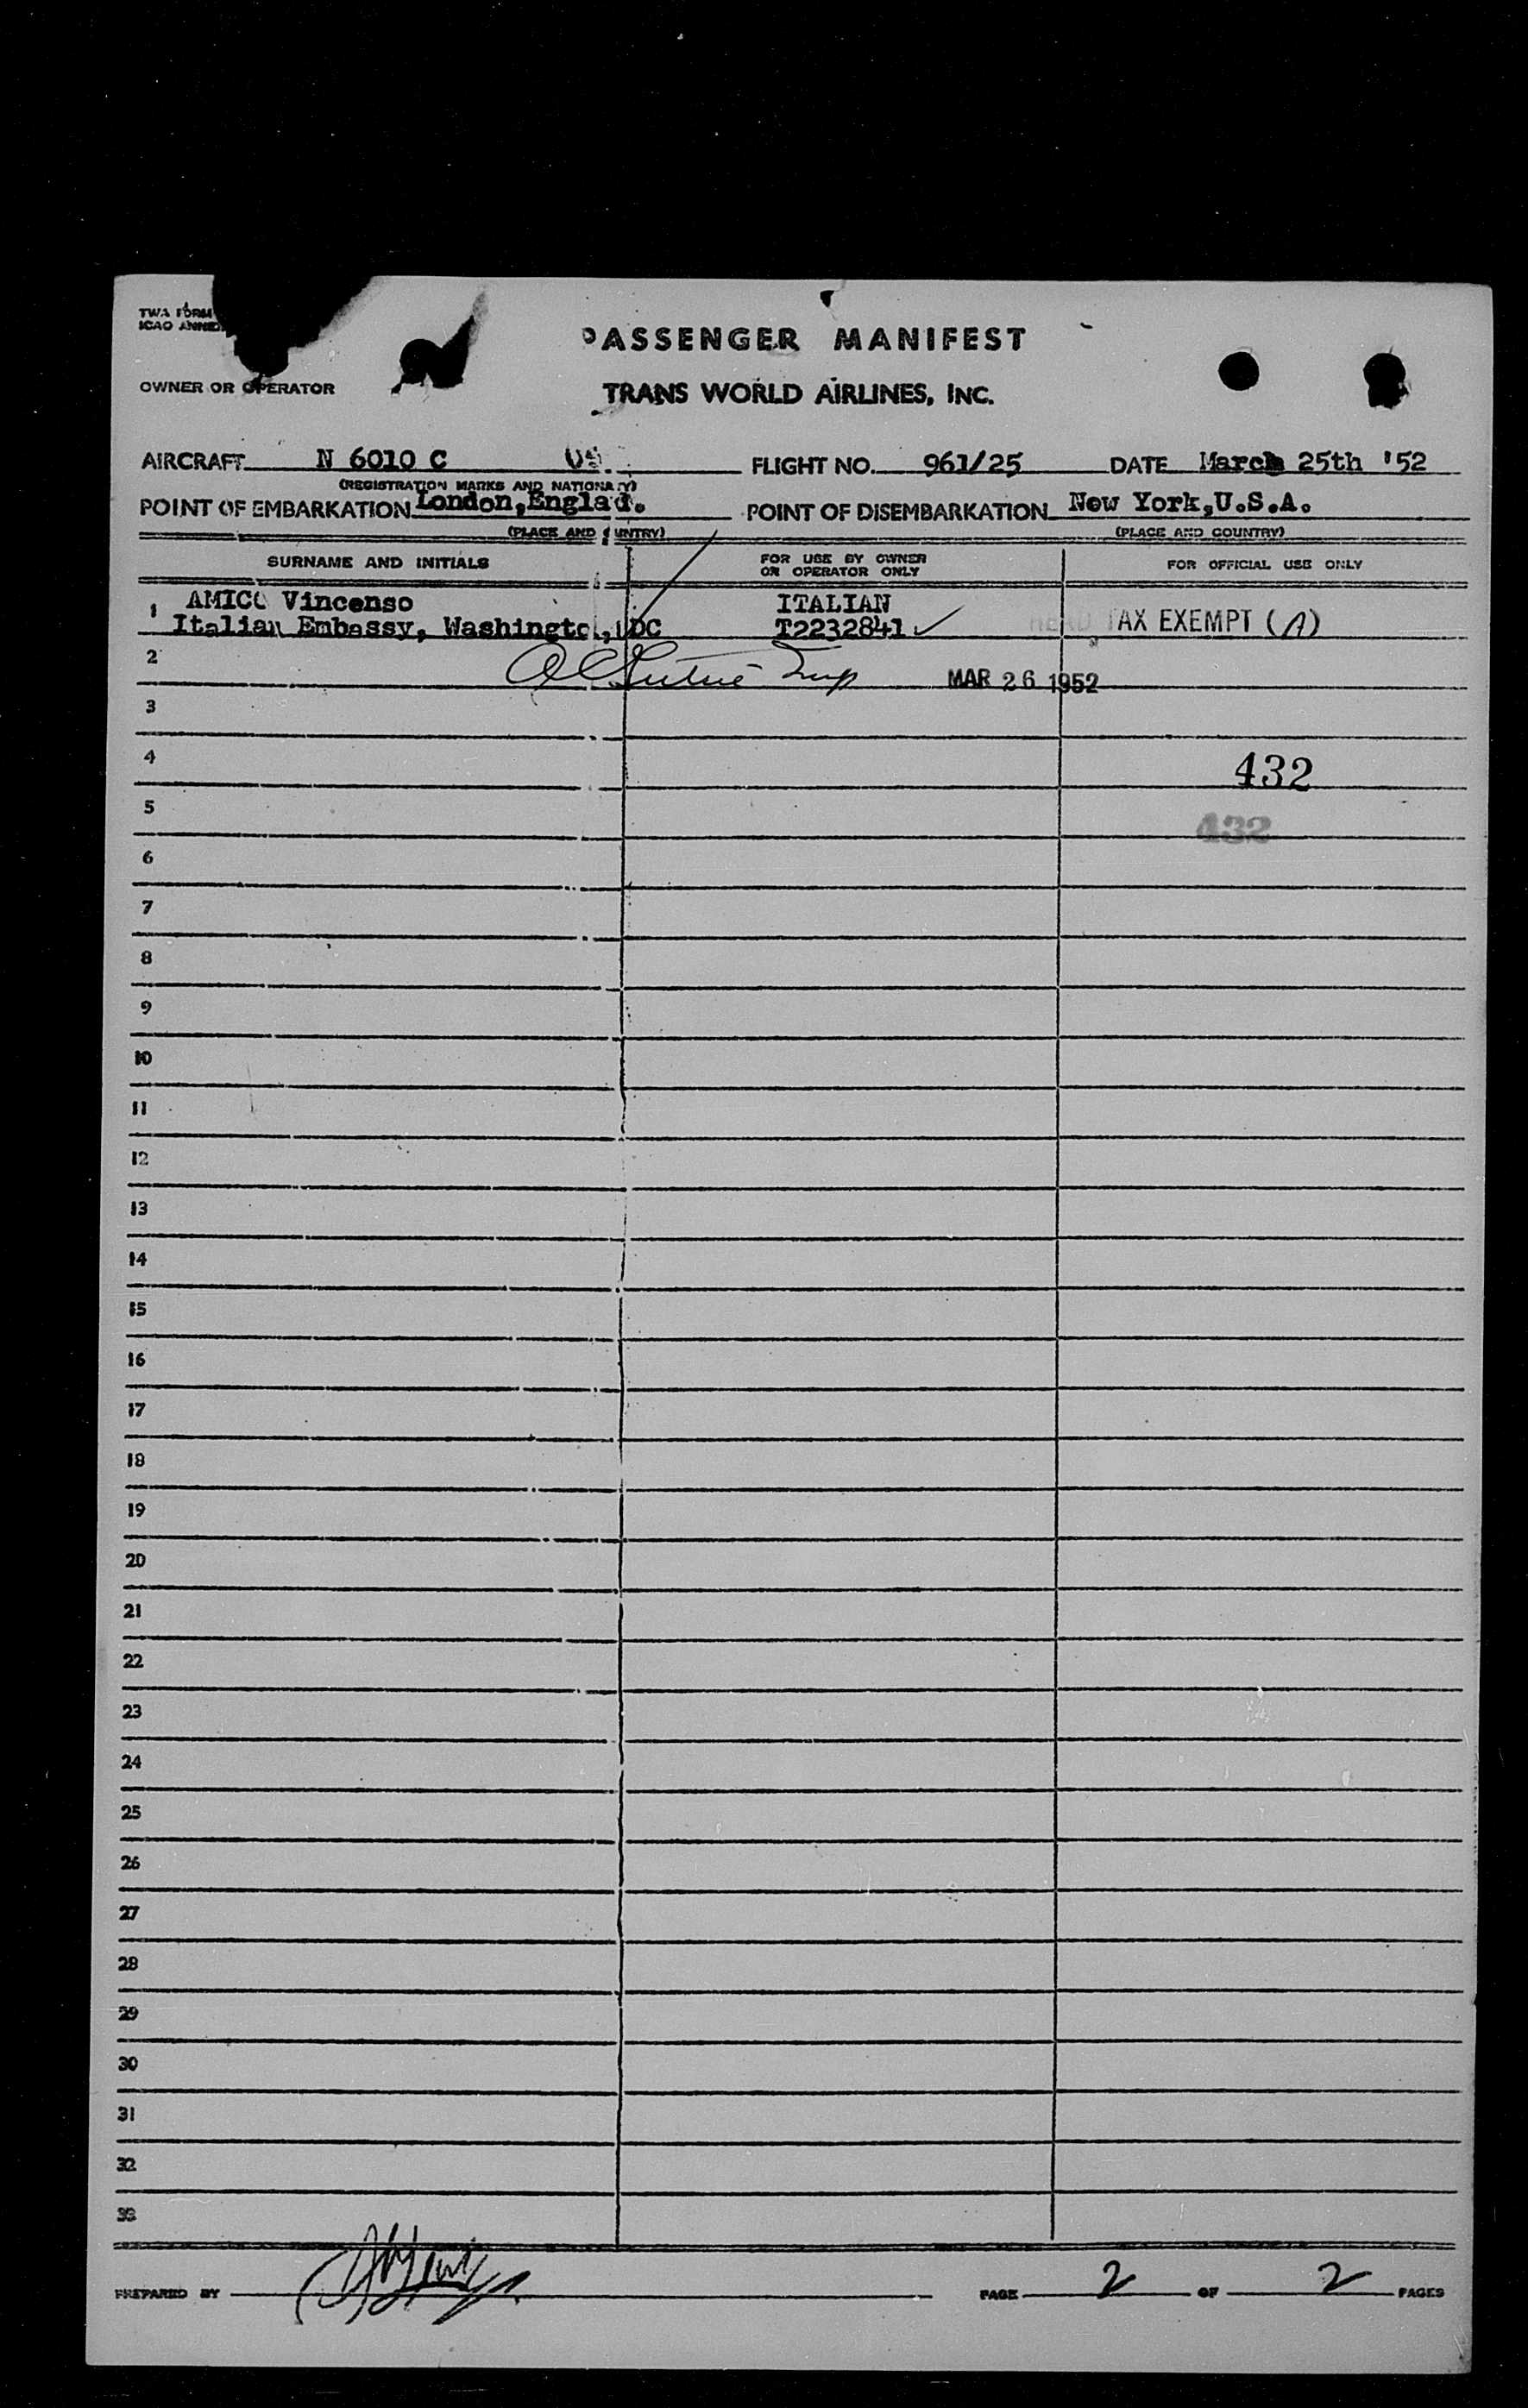 TWA FORM
ICAO
PASSENGER MANIFEST
OWNER OR OPERATOR
TRANS WORLD AIRLINES, INC.
AIRCRAFT N 6010 C US. FLIGHT NO. 961/25 DATE March 25th '52
(REGISTRATION MARKS AND NATIONA TY)
POINT OF EMBARKATION London,Engla d. POINT OF DISEMBARKATION New York,U.S.A.
(PLACE AND UNTRY) (PLACE AND COUNTRY)
SURNAME AND INITIALS FOR USE BY OWNER OR OPERATOR ONLY FOR OFFICIAL USE ONLY
1 AMICO Vincenso ITALIAN
Italian Embassy, Washingto , DC T2232841 ✓ HEAD TAX EXEMPT (A)
2 MAR 26 1952
3
4 432
5 432
6
7
8
9
10
11
12
13
14
15
16
17
18
19
20
21
22
23
24
25
26
27
28
29
30
31
32
33
PREPARED BY PAGE 2 OF 2 PAGES